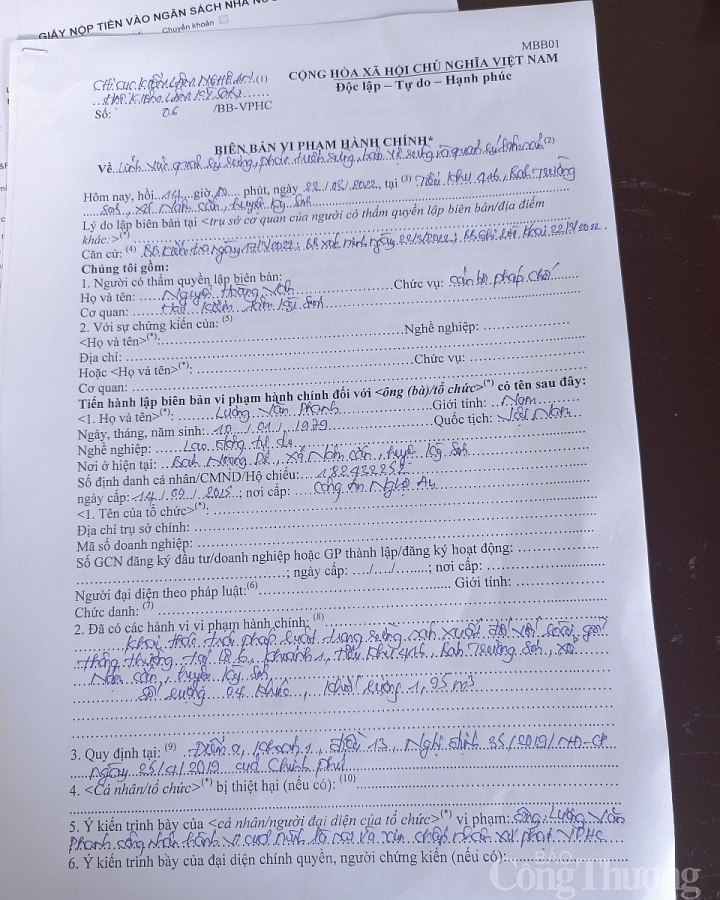 GIẤY NỘP TIỀN VÀO NGÂN SÁCH NHÀ
Chuyển khoản
MBB01
CHI CỤC KIỂM LÂM NGHỆ AN (1)
HẠT KIỂM LÂM KỲ SƠN
Số: 06 /BB-VPHC
CỘNG HÒA XÃ HỘI CHỦ NGHĨA VIỆT NAM
Độc lập – Tự do – Hạnh phúc
BIÊN BẢN VI PHẠM HÀNH CHÍNH*
Về Lĩnh vực quản lý rừng, phát triển rừng, bảo vệ rừng và quản lý lâm sản (2)
Hôm nay, hồi 14 giờ phút, ngày 22/03/2022, tại (3) Tiểu khu 416, Bản Trường
Sơn, xã Nậm Cắn, huyện Kỳ Sơn
Lý do lập biên bản tại <trụ sở cơ quan của người có thẩm quyền lập biên bản/địa điểm
khác:>(*)
Căn cứ: (4) BB kiểm tra ngày 17/3/2022; BB xác minh ngày 22/3/2022; BB ghi lời khai 22/3/2022.
Chúng tôi gồm:
1. Người có thẩm quyền lập biên bản:
Họ và tên: Nguyễn Chức vụ: cán bộ pháp chế
Cơ quan: Hạt Kiểm lâm Kỳ Sơn
2. Với sự chứng kiến của: (5)
<Họ và tên>(*): Nghề nghiệp:
Địa chỉ:
Hoặc <Họ và tên>(*): Chức vụ:
Cơ quan:
Tiến hành lập biên bản vi phạm hành chính đối với <ông (bà)/tổ chức>(*) có tên sau đây:
<1. Họ và tên>(*): Lương Văn Phanh Giới tính: Nam
Ngày, tháng, năm sinh: 10/01/1979 Quốc tịch: Việt Nam
Nghề nghiệp: Lao động tự do
Nơi ở hiện tại: Bản Noọng Dẻ, xã Nậm Cắn, huyện Kỳ Sơn
Số định danh cá nhân/CMND/Hộ chiếu:
ngày cấp: 14/09/2015; nơi cấp: Công An Nghệ An
<1. Tên của tổ chức>(*):
Địa chỉ trụ sở chính:
Mã số doanh nghiệp:
Số GCN đăng ký đầu tư/doanh nghiệp hoặc GP thành lập/đăng ký hoạt động:
; ngày cấp: ..../..../........; nơi cấp:
Người đại diện theo pháp luật:(6) Giới tính:
Chức danh: (7)
2. Đã có các hành vi vi phạm hành chính: (8)
Khai thác trái pháp luật rừng sản xuất đối với loài gỗ
thông thường tại lô 6, khoảnh 1, tiểu khu 416, Bản Trường Sơn, xã
Nậm Cắn, huyện Kỳ Sơn
Số lượng 04 khúc, khối lượng 1,95 m3
3. Quy định tại: (9) Điểm a, khoản 1, Điều 13, Nghị định 35/2019/NĐ-CP
ngày 25/4/2019 của Chính phủ
4. <Cá nhân/tổ chức>(*) bị thiệt hại (nếu có): (10)
5. Ý kiến trình bày của <cá nhân/người đại diện của tổ chức>(*) vi phạm: Ông Lương Văn
Phanh công nhận hành vi của mình là sai và xin chấp nhận xử phạt VPHC
6. Ý kiến trình bày của đại diện chính quyền, người chứng kiến (nếu có):
BÁO
Công Thương